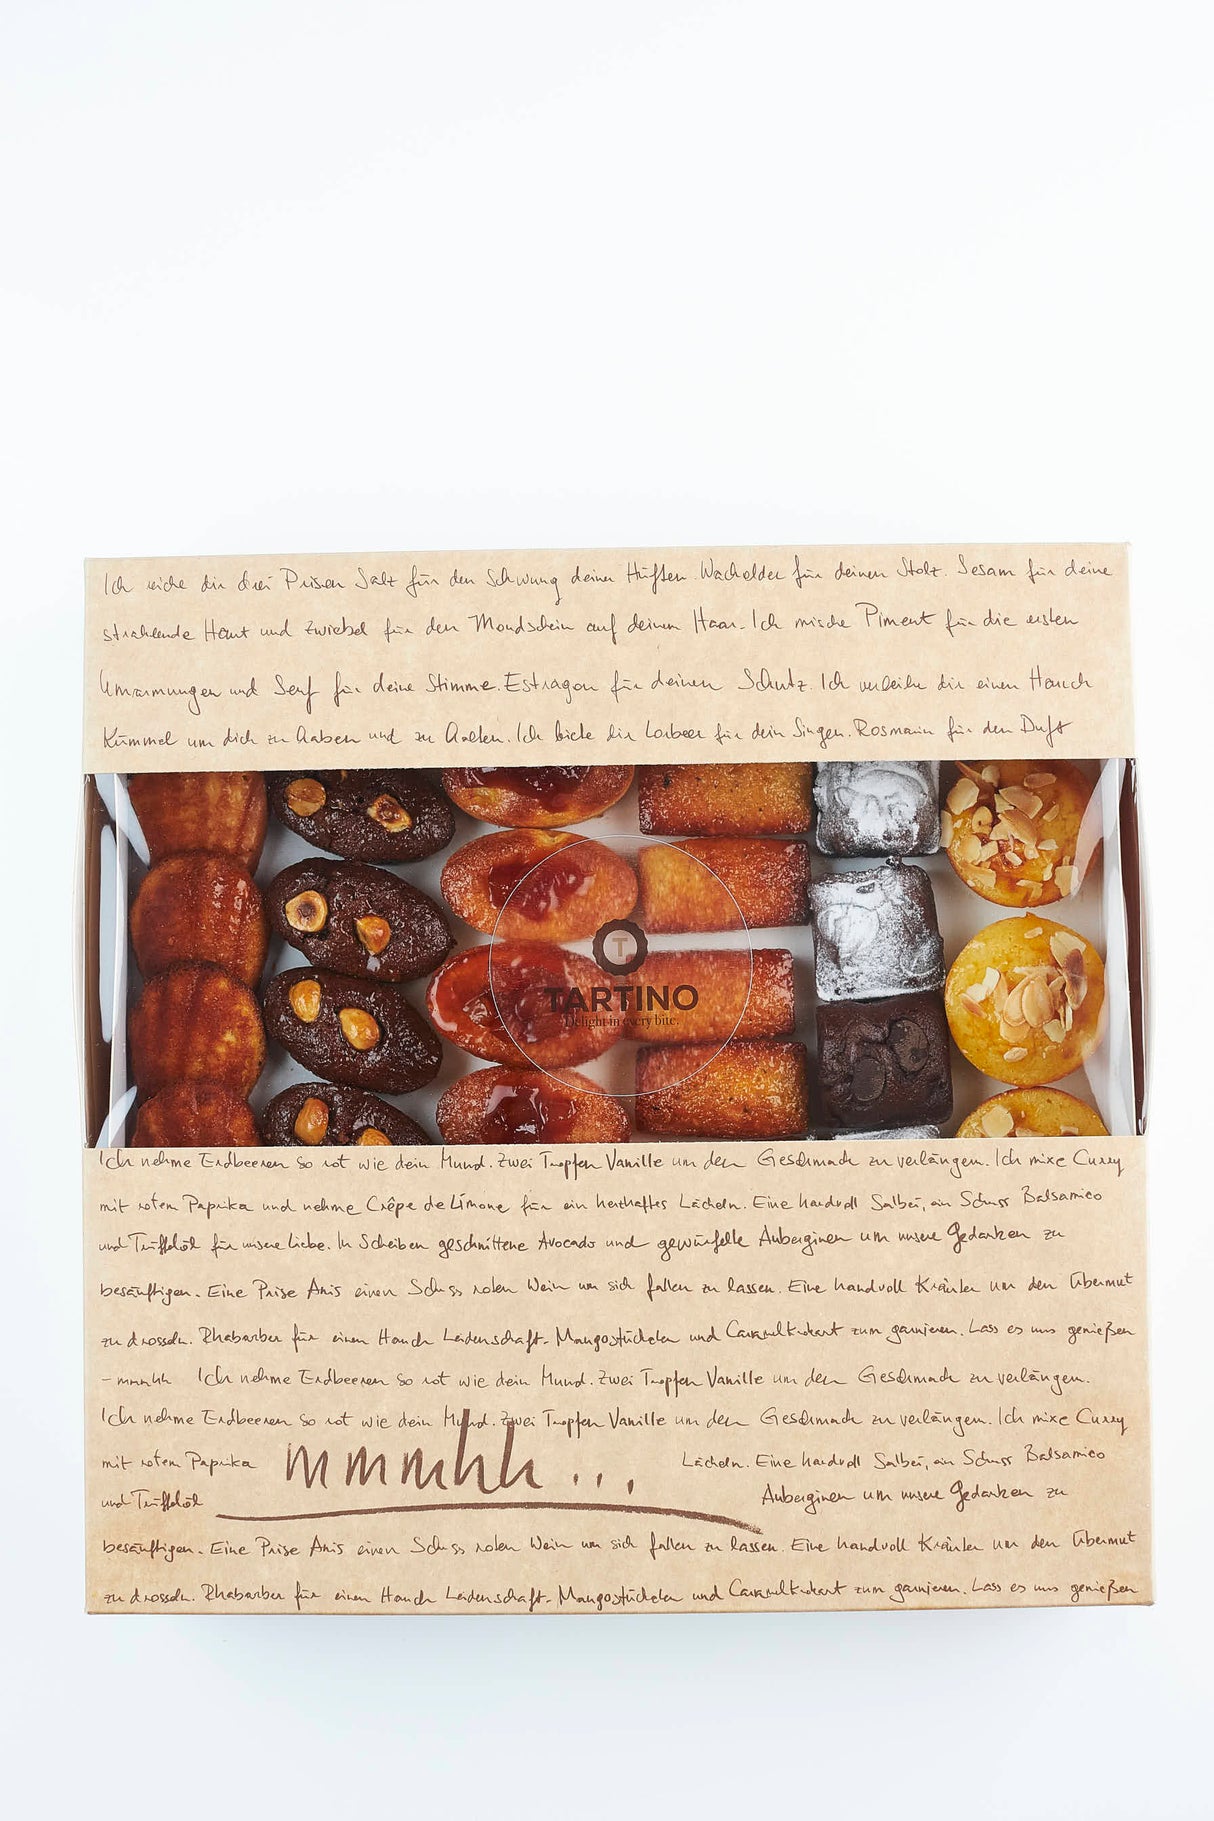 Ich reiche dir drei Prisen Salz für den Schwung deiner Hüften. Wacholder für deinen Stolz. Sesam für deine
strahlende Haut und Zwiebel für den Mondschein auf deinem Haar. Ich mische Piment für die ersten
Umarmungen und Senf für deine Stimme. Estragon für deinen Schutz. Ich verleihe dir einen Hauch
Kümmel um dich zu laben und zu Ich biete dir Lorbeer für dein Singen. Rosmarin für den Duft
T
TARTINO
Delight in every bite.
Ich nehme Erdbeeren so rot wie dein Mund. Zwei Tropfen Vanille um den Geschmack zu verlängern. Ich mixe Curry
mit rotem Paprika und nehme Crêpe de Limone für ein herzhaftes Lächeln. Eine handvoll Salbei, ein Schuss Balsamico
und Trüffelöl für unsere Liebe. In Scheiben geschnittene Avocado und gewürfelte Auberginen um unsere Gedanken zu
besänftigen. Eine Prise Anis einen Schuss roten Wein um sich fallen zu lassen. Eine handvoll Kräuter um den Übermut
zu drosseln. Rhabarber für einen Hauch Leidenschaft. Mangostückchen und Caramelkrokant zum garnieren. Lass es uns genießen
- mmmhh Ich nehme Erdbeeren so rot wie dein Mund. Zwei Tropfen Vanille um den Geschmack zu verlängern.
Ich nehme Erdbeeren so rot wie dein Mund. Zwei Tropfen Vanille um den Geschmack zu verlängern. Ich mixe Curry
mit rotem Paprika mmmhh... Lächeln. Eine handvoll Salbei, ein Schuss Balsamico
und Trüffelöl Auberginen um unsere Gedanken zu
besänftigen. Eine Prise Anis einen Schuss roten Wein um sich fallen zu lassen. Eine handvoll Kräuter um den Übermut
zu drosseln. Rhabarber für einen Hauch Leidenschaft. Mangostückchen und Caramelkrokant zum garnieren. Lass es uns genießen